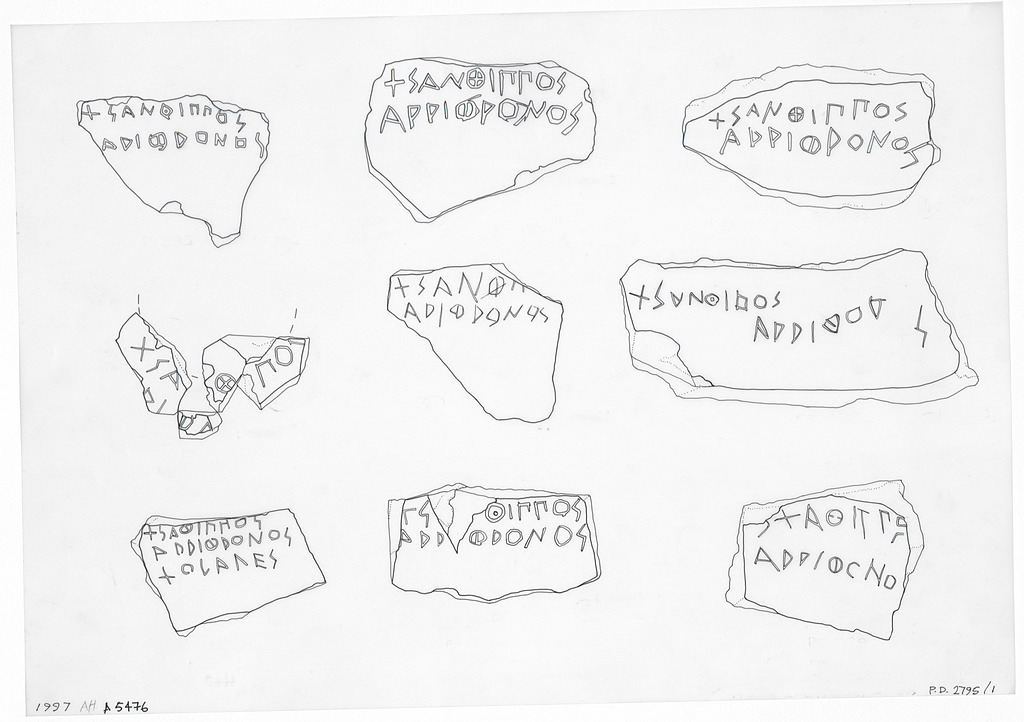 +ΣΑΝΘΙΠΠΟΣ
ΑΡΙΦΡΟΝΟΣ
+ΣΑΝΘΙΠΠΟΣ
ΑΡΡΙΦΡΟΝΟΣ
+ΣΑΝΘΙΠΠΟΣ
ΑΡΡΙΦΡΟΝΟΣ
+ΣΑ Θ ΠΟ
+ΣΑΝΘΙΠ
ΑΡΙΦΡΟΝΟΣ
+ΣΑΝΘΙΠΟΣ
ΑΡΡΙΦ Σ
+ΣΑΘΙΠΠΟΣ
ΑΡΡΙΦΡΟΝΟΣ
+Σ ΘΙΠΠΟΣ
ΑΡΡ ΦΡΟΝΟΣ
Σ+ΑΘΙΠΠΟ
ΑΡΡΙΦΟΝΟ
1997 AH A 5476
P.D. 2795/1